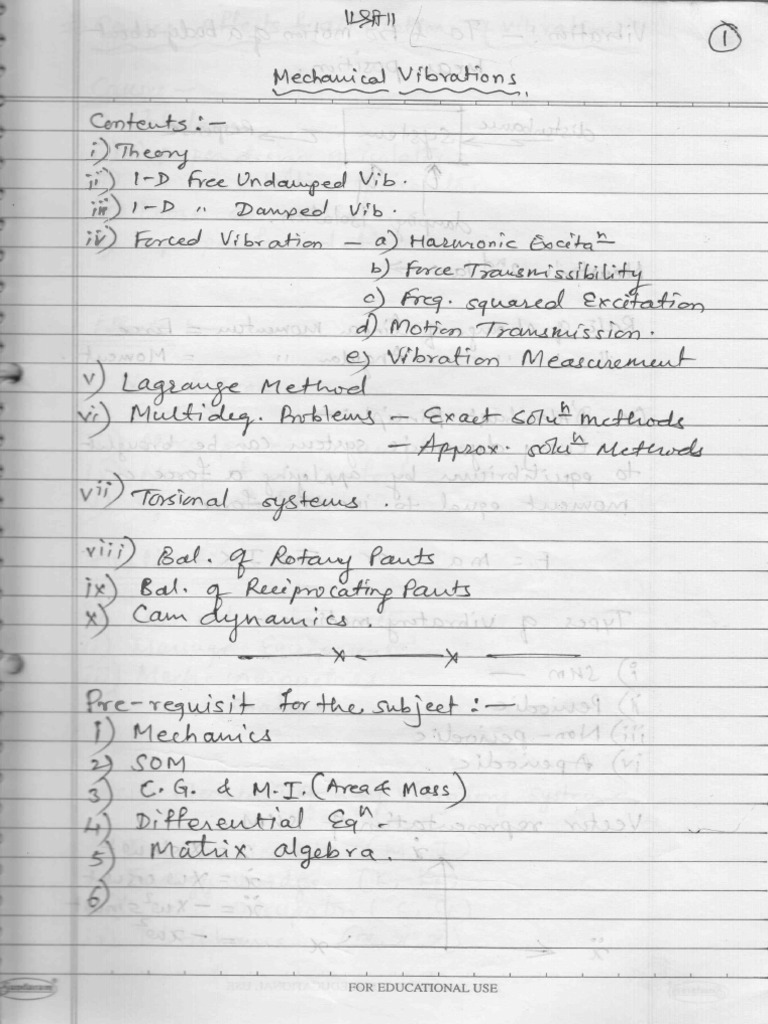 1
Mechanical Vibrations
Contents :-
i) Theory
ii) 1-D Free Undamped Vib.
iii) 1-D " Damped Vib.
iv) Forced Vibration - a) Harmonic Excitaⁿ
b) Force Transmissibility
c) Freq. squared Excitation
d) Motion Transmission.
e) Vibration Measurement
v) Lagrange Method
vi) Multideg. Problems - Exact soluⁿ methods
- Approx. soluⁿ Methods
vii) Torsional systems.
viii) Bal. of Rotary Parts
ix) Bal. of Reciprocating Parts
x) Cam dynamics
Pre-requisit for the subject :-
1) Mechanics
2) SOM
3) C.G. & M.I. (Area & Mass)
4) Differential Eqⁿ.
5) Matrix algebra.
6)
FOR EDUCATIONAL USE